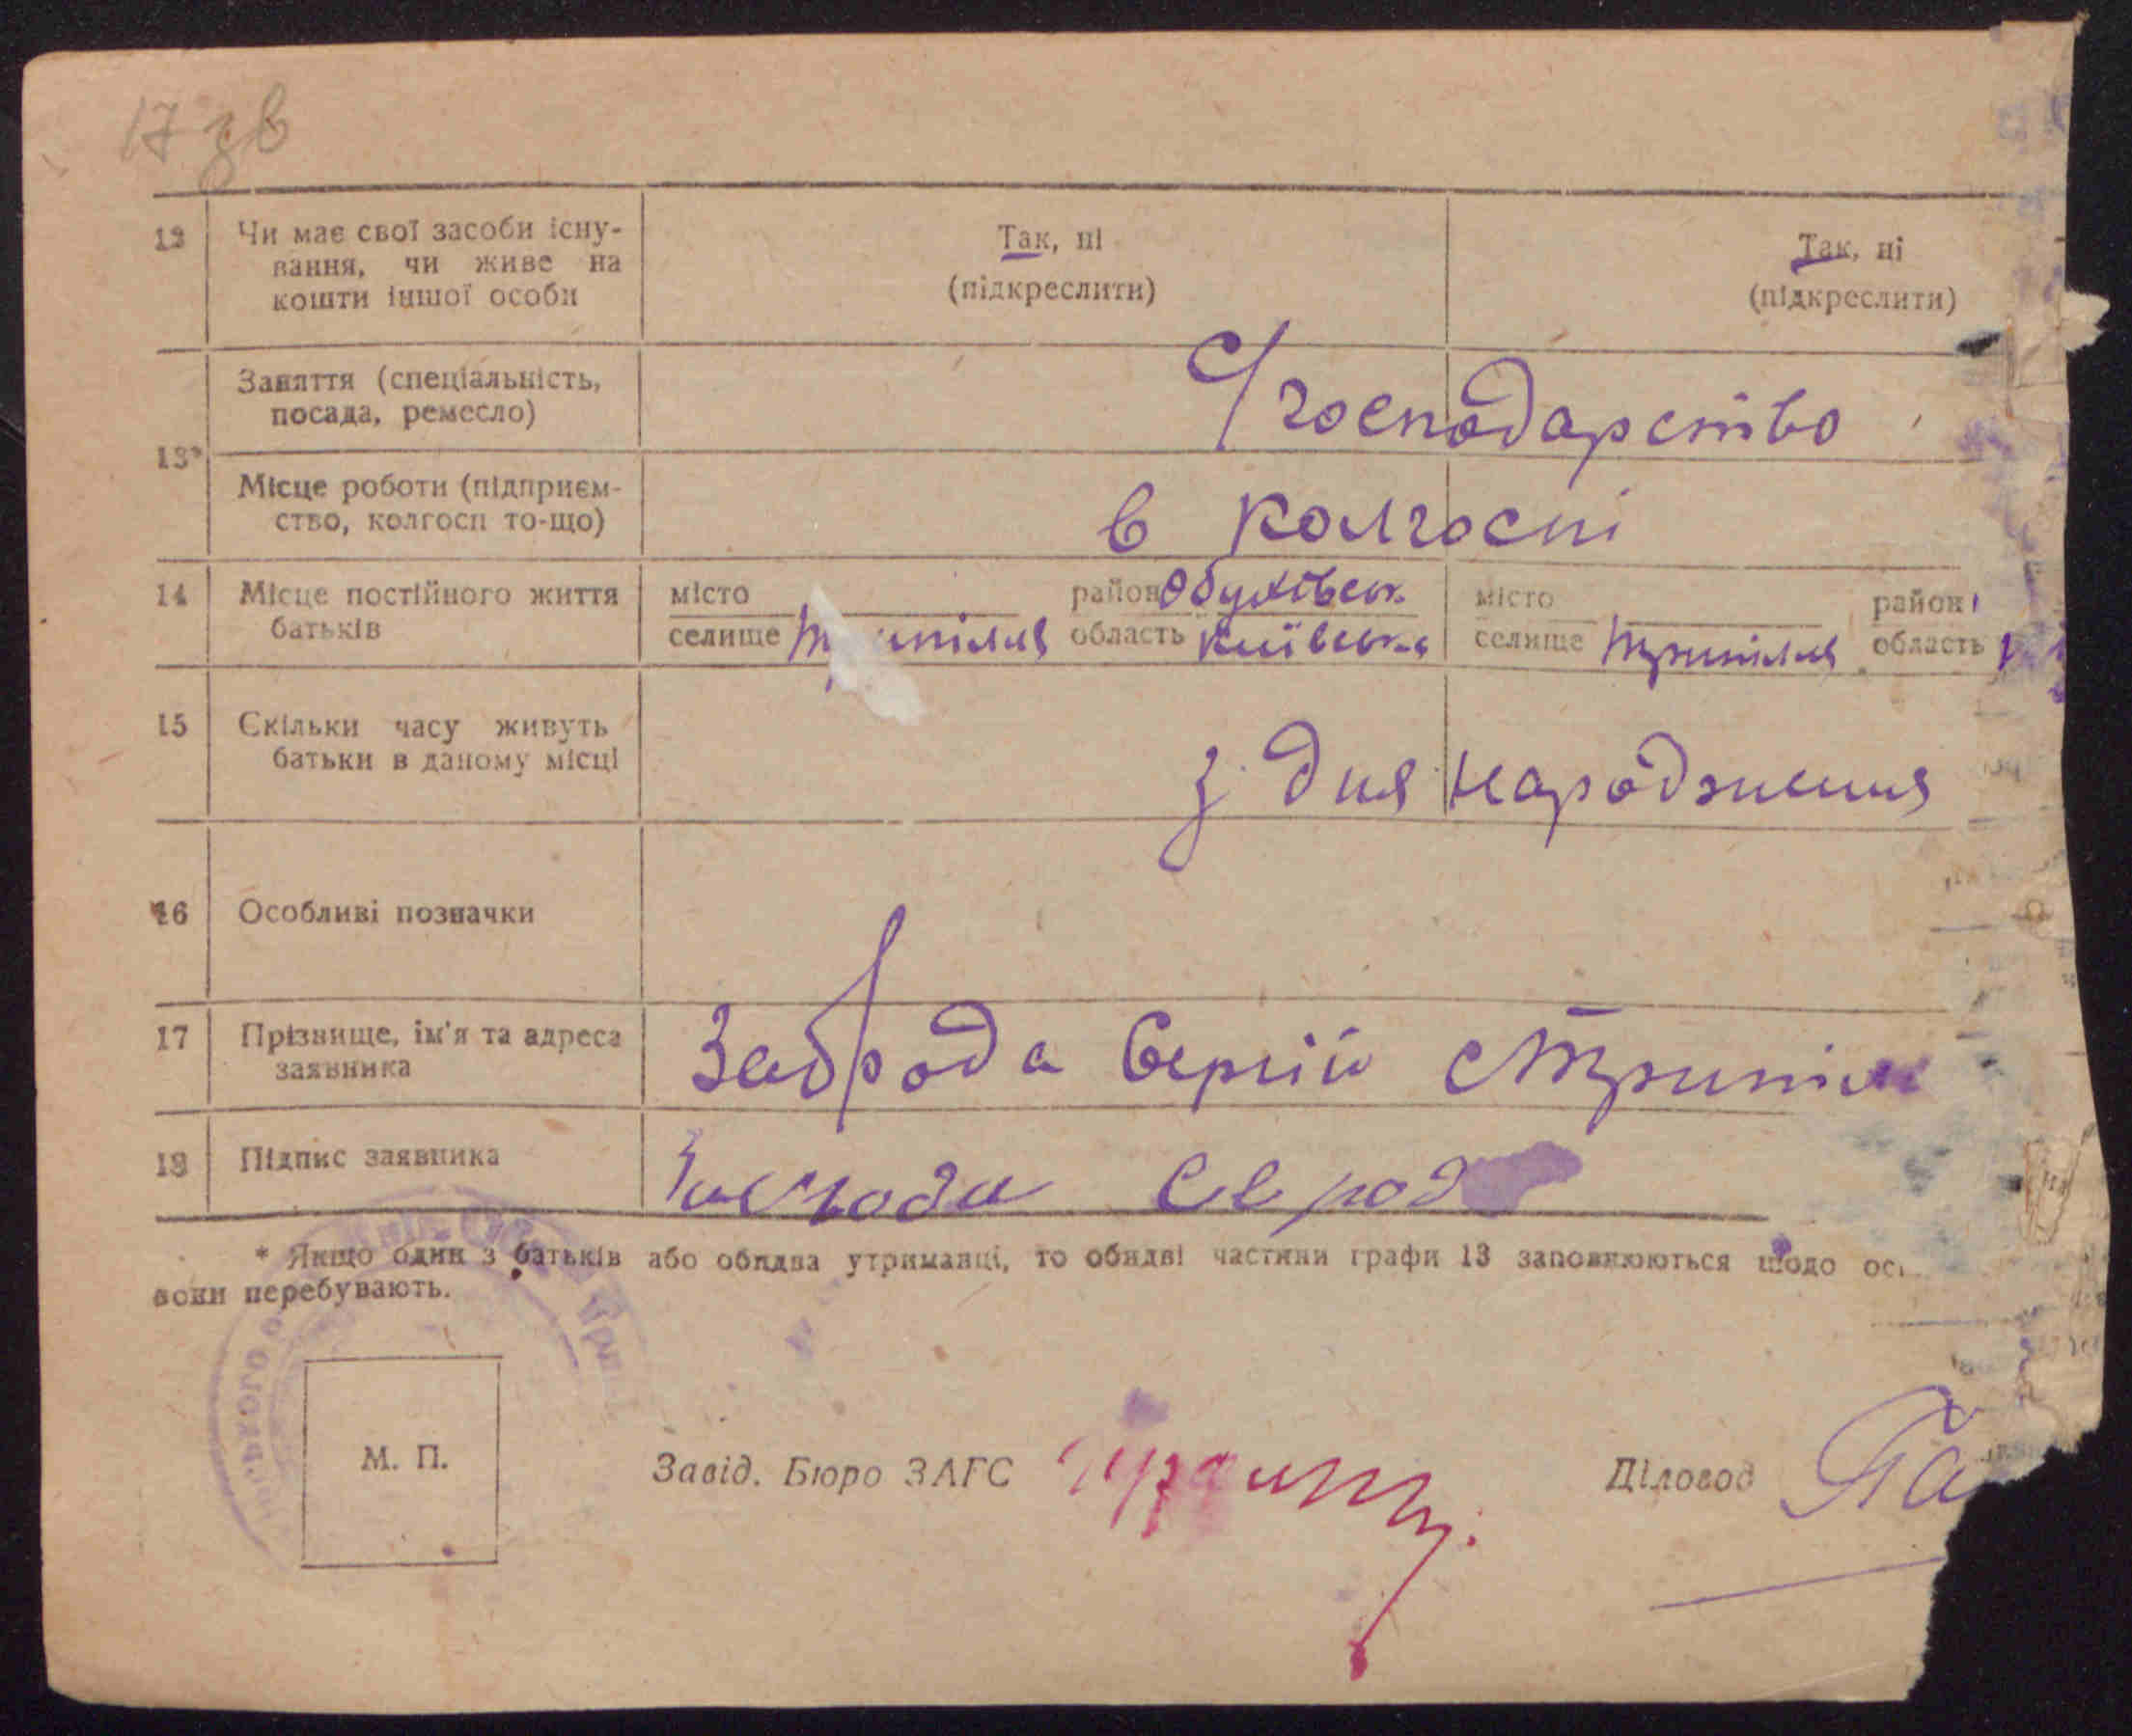 17 зв
12 Чи має свої засоби існу-
вання, чи живе на
кошти іншої особи
Так, ні
(підкреслити)
Так, ні
(підкреслити)
13*
Заняття (спеціальність,
посада, ремесло)
С/господарство
Місце роботи (підприєм-
ство, колгосп то-що)
в колгоспі
14 Місце постійного життя
батьків
місто
селище Трипілля
район Обухівськ.
область Київська
місто
селище Трипілля
район
область
15 Скільки часу живуть
батьки в даному місці
з дня народження
16 Особливі позначки
17 Прізвище, ім'я та адреса
заявника
Заброда Сергій с Трипілл
18 Підпис заявника
* Якщо один з батьків або обидва утриманці, то обидві частини графи 13 заповнюються щодо ос
вони перебувають.
М. П.
Завід. Бюро ЗАГС
Діловод